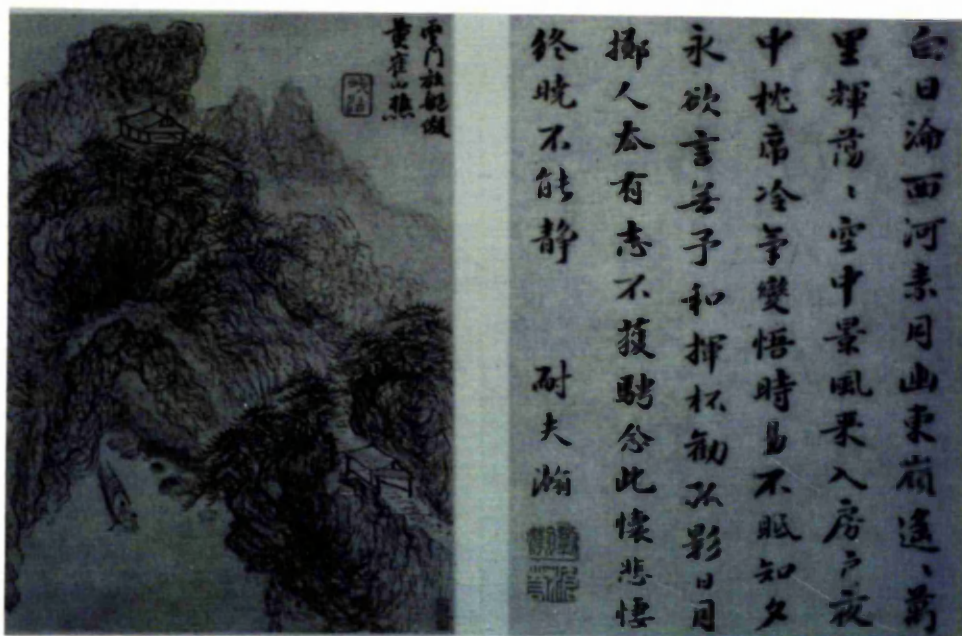 白日淪西河素月出東嶺遙〻萬
里輝蕩〻空中景風来入房戶夜
中枕席冷氣變悟時易不眠知夕
永欲言無予和揮杯勸孤影日月
擲人去有志不獲騁念此懷悲悽
終曉不能靜 耐夫瀚
雲門倣
黄寉山樵